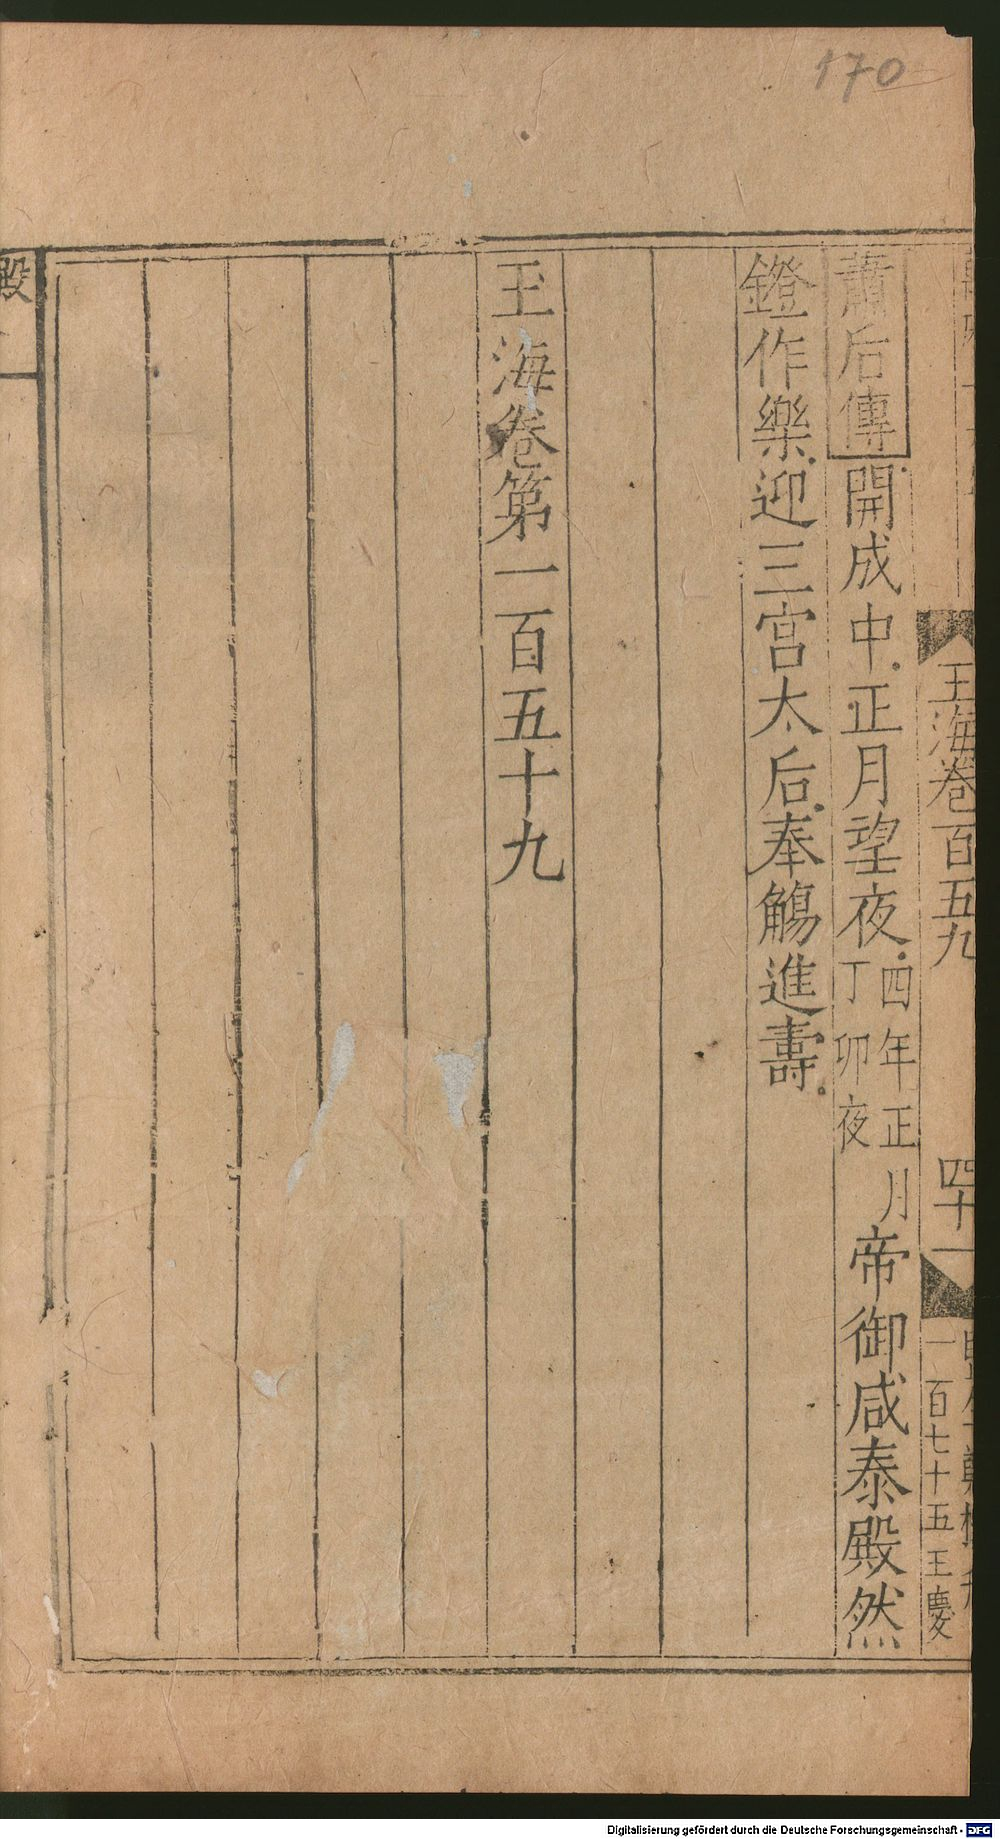 170
玉海卷百五九
四十一
一百七十五 王慶
蕭后傳開成中正月望夜四年正月丁卯夜帝御咸泰殿然
鐙作樂迎三宮太后奉觴進壽
玉海卷第一百五十九
殿
Digitalisierung gefördert durch die Deutsche Forschungsgemeinschaft - DFG